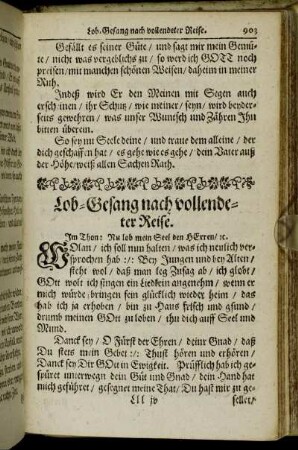 Lob-Gesang nach vollendeter Reise. 903
Gefällt es seiner Güte / und sagt mir mein Gemü-
te / nicht was vergeblichs zu / so werd ich GOTT noch
preisen / mit manchen schönen Weisen / daheim in meiner
Ruh.
Indeß wird Er den Meinen mit Segen auch
erscheinen / ihr Schutz / wie meiner / seyn / wird beyder-
seits gewehren / was unser Wunsch und Zähren Ihn
bitten überein.
So sey nu Seele deine / und traue dem alleine / der
dich geschaffen hat / es gehe wie es gehe / dein Vater auß
der Höhe / weiß allen Sachen Rath.
Lob-Gesang nach vollende-
ter Reise.
Im Thon: Nu lob mein Seel den HErren / ꝛc.
WOlan / ich soll nun halten / was ich neulich ver-
sprochen hab :/: Bey Jungen und bey Alten /
steht wol / daß man leg Zusag ab / ich globt /
GOtt wolt ich singen ein Liedlein angenehm / wenn er
mich würde bringen fein glücklich wieder heim / das
hab ich ja erhoben / bin zu Hauß frisch und gsund /
drumb meinen GOtt zu loben / thu dich auff Seel und
Mund.
Danck sey / O Fürst der Ehren / deiner Gnad / daß
Du stets mein Gebet :/: Thust hören und erhören /
Danck sey Dir GOtt in Ewigkeit. Prüfflich hab ich ge-
spüret unterwegn dein Güt und Gnad / dein Hand hat
mich geführet / gesegnet meine That / Du hast mir zu ge-
Lll iv sellet /